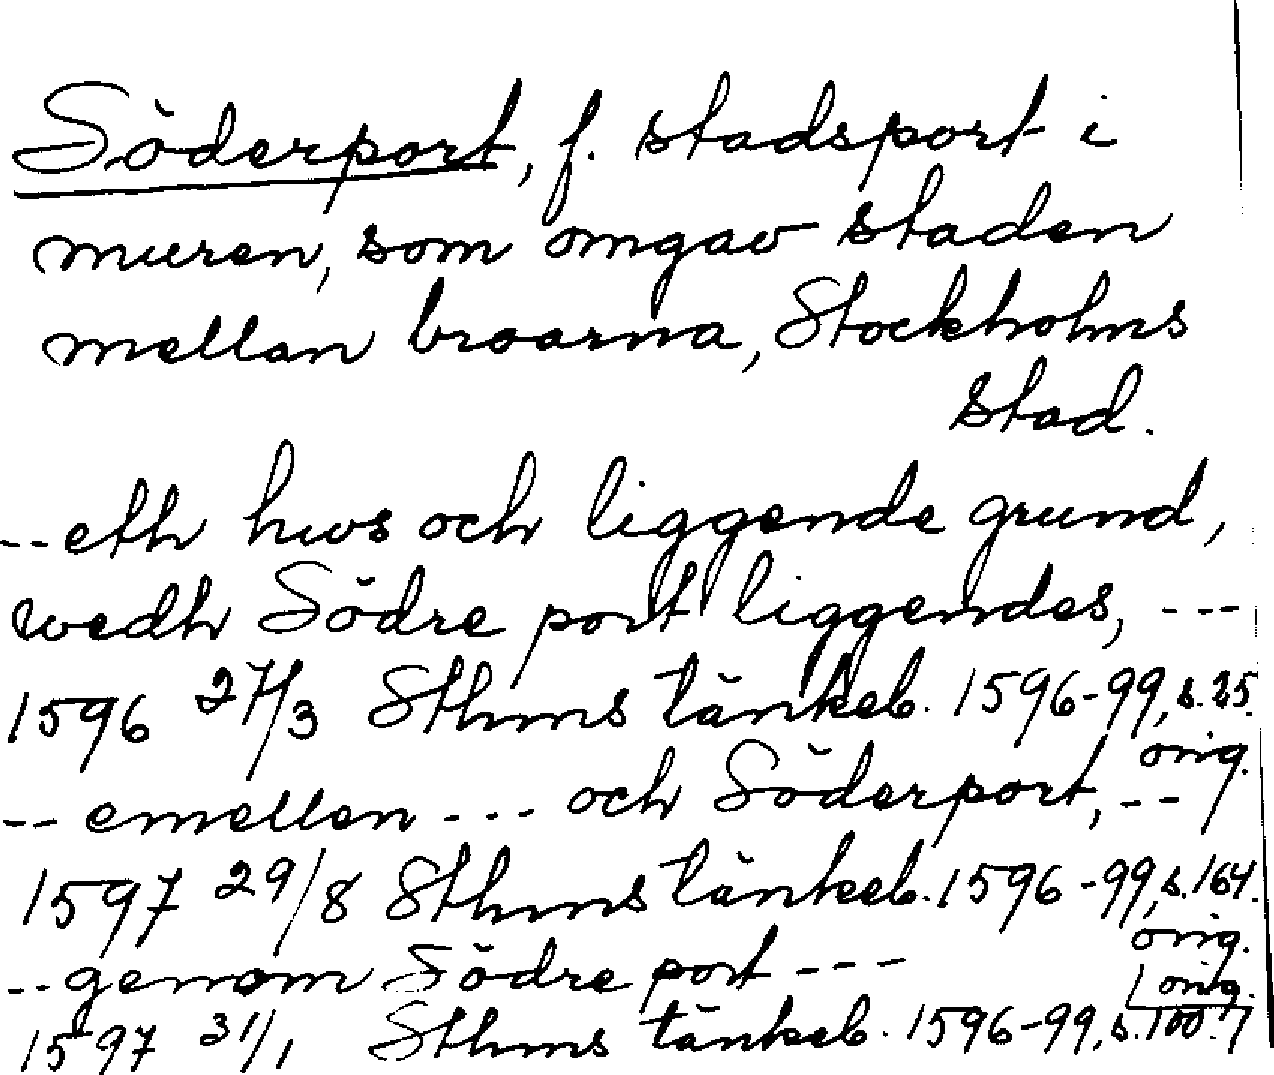 Söderport, f. stadsport i
muren, som omgav staden
mellan broarna, Stockholms
stad.
-- eth hws och liggende grund,
wedh Södre port liggendes, ---
1596 27/3 Sthms tänkeb. 1596-99, s. 25.
orig.
-- emellen --- och Söderport, --
1597 29/8 Sthms tänkeb. 1596-99, s. 164.
orig.
-- genom Södre port ---
orig.
1597 31/1 Sthms tänkeb. 1596-99, s. 100.